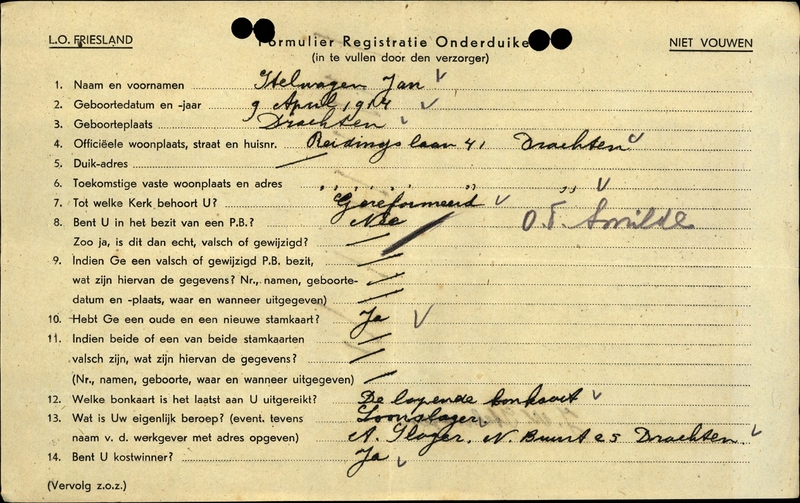 L.O. FRIESLAND
Formulier Registratie Onderduike
NIET VOUWEN
(in te vullen door den verzorger)
1. Naam en voornamen Stelwagen Jan
2. Geboortedatum en -jaar 9 April 1914
3. Geboorteplaats Drachten
4. Officiëele woonplaats, straat en huisnr. Reidingslaan 41 Drachten
5. Duik-adres
6. Toekomstige vaste woonplaats en adres ,, ,, ,, ,, ,, ,,
7. Tot welke Kerk behoort U? Gereformeerd
8. Bent U in het bezit van een P.B.? Nee O.T. Smilde
Zoo ja, is dit dan echt, valsch of gewijzigd?
9. Indien Ge een valsch of gewijzigd P.B. bezit,
wat zijn hiervan de gegevens? Nr., namen, geboorte-
datum en -plaats, waar en wanneer uitgegeven)
10. Hebt Ge een oude en een nieuwe stamkaart? Ja
11. Indien beide of een van beide stamkaarten
valsch zijn, wat zijn hiervan de gegevens?
(Nr., namen, geboorte, waar en wanneer uitgegeven)
12. Welke bonkaart is het laatst aan U uitgereikt? De lopende bonkaart
13. Wat is Uw eigenlijk beroep? (event. tevens Loonslager
naam v. d. werkgever met adres opgeven) A. Slager. N. Buurt 25 Drachten
14. Bent U kostwinner? Ja
(Vervolg z.o.z.)